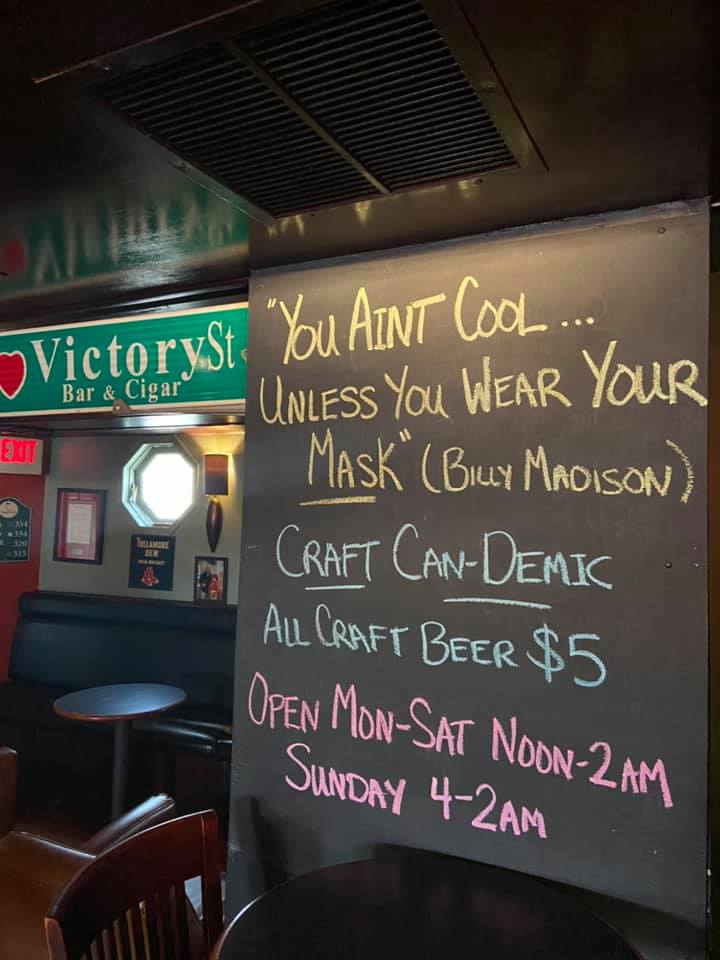 "You Aint Cool...
Unless You Wear Your
Mask" (Billy Madison)
Craft Can-Demic
All Craft Beer $5
Open Mon-Sat Noon-2am
Sunday 4-2am
Victory St
Bar & Cigar
EXIT
Tullamore
Dew